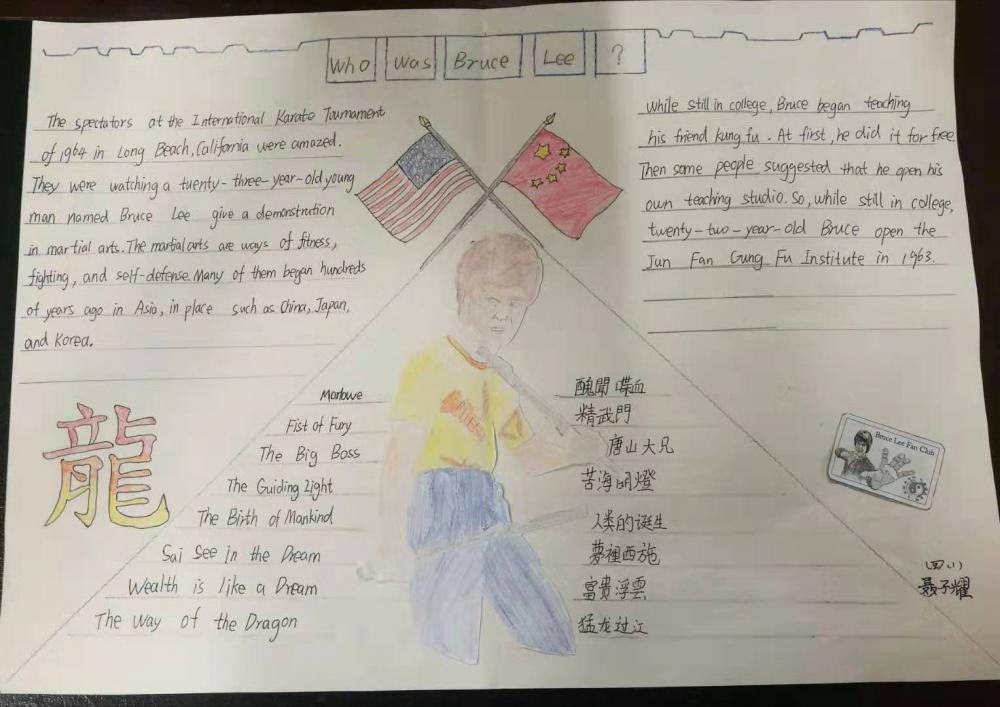 Who was Bruce Lee ?
The spectators at the International Karate Tournament
of 1964 in Long Beach, California were amazed.
They were watching a twenty-three-year-old young
man named Bruce Lee give a demonstration
in martial arts. The martial arts are ways of fitness,
fighting, and self-defense. Many of them began hundreds
of years ago in Asia, in place such as China, Japan,
and Korea.
while still in college, Bruce began teaching
his friend kung fu. At first, he did it for free.
Then some people suggested that he open his
own teaching studio. So, while still in college,
twenty-two-year-old Bruce open the
Jun Fan Gung Fu Institute in 1963.
龍
Marlowe 醜聞喋血
Fist of Fury 精武門
The Big Boss 唐山大兄
The Guiding Light 苦海明燈
The Birth of Mankind 人类的诞生
Sai See in the Dream 夢裡西施
Wealth is like a Dream 富貴浮雲
The way of the Dragon 猛龙过江
Bruce Lee Fan Club
四(1)
聂子耀